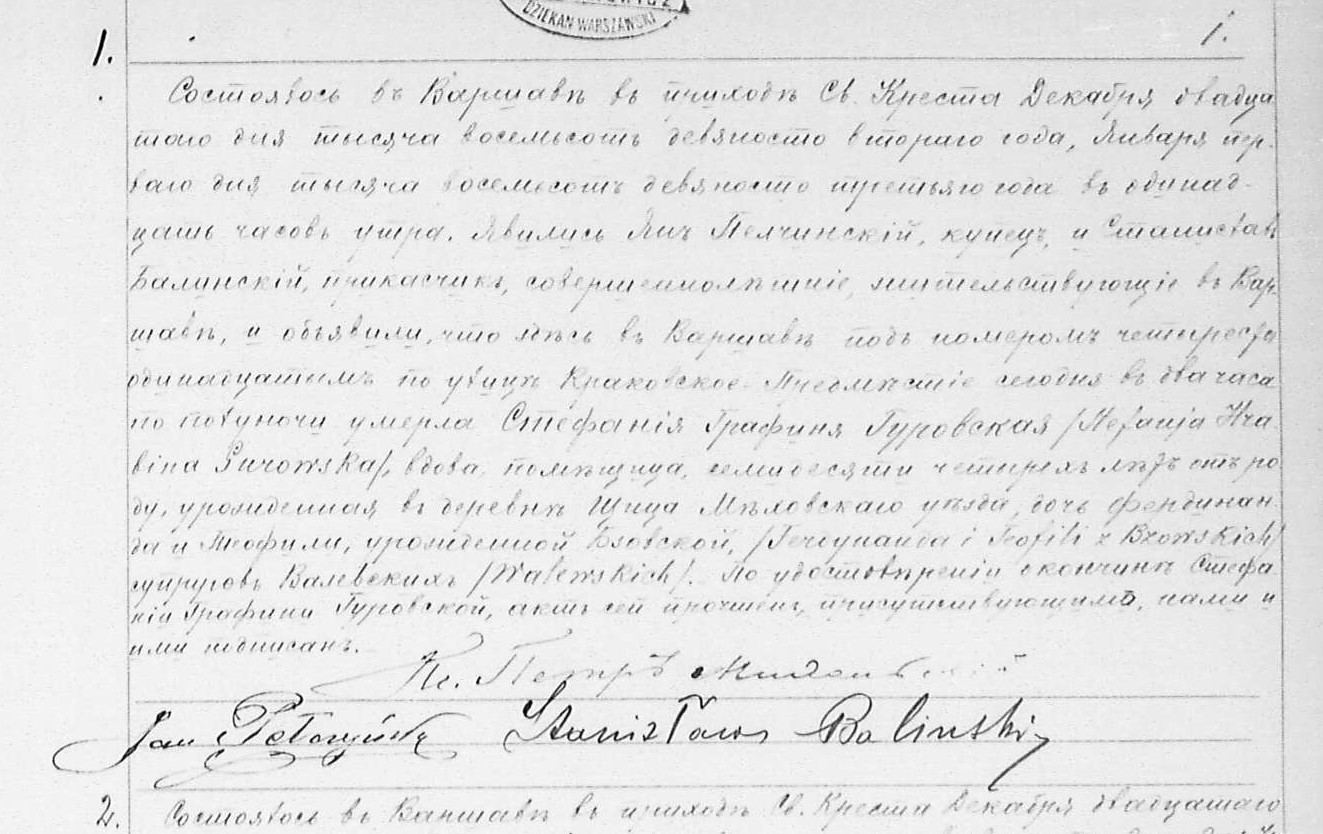 DZIEKAN WARSZAWSKI
1. 1.
Состоялось въ Варшавѣ въ приходѣ Св. Креста Декабря двадца
таго дня тысяча восемьсотъ девяносто втораго года, Января пер-
ваго дня тысяча восемьсотъ девяносто третьяго года въ одинад-
цать часовъ утра. Явились Янъ Пелчинскій, купецъ, и Станиславъ
Балинскій, прикасчикъ, совершеннолѣтніе, жительствующіе въ Вар-
шавѣ, и объявили, что здѣсь въ Варшавѣ подъ номеромъ четыреста
одинадцатымъ по улицѣ Краковское-Предмѣстіе сегодня въ два часа
по полуночи умерла Стефанія Графиня Гуровская /Stefanja Hra
bina Gurowska/, вдова, помѣщица, семидесяти четырехъ лѣтъ отъ ро
ду, урожденная въ деревнѣ Щица Мѣховскаго уѣзда, дочь Фендинан
да и Теофили, урожденной Бзовской, /Ferdynanda i Teofili z Bzowskich/
супруговъ Валевскихъ /Walewskich/. По удостовѣреніи о кончинѣ Стефа
ніи Графини Гуровской, актъ сей прочтенъ, присутствующимъ, нами и
ими подписанъ.
Кс. Петръ
Jan Pełczyński Stanisław Balinski
2. Состоялось въ Варшавѣ въ приходѣ Св. Креста Декабря двадцатаго